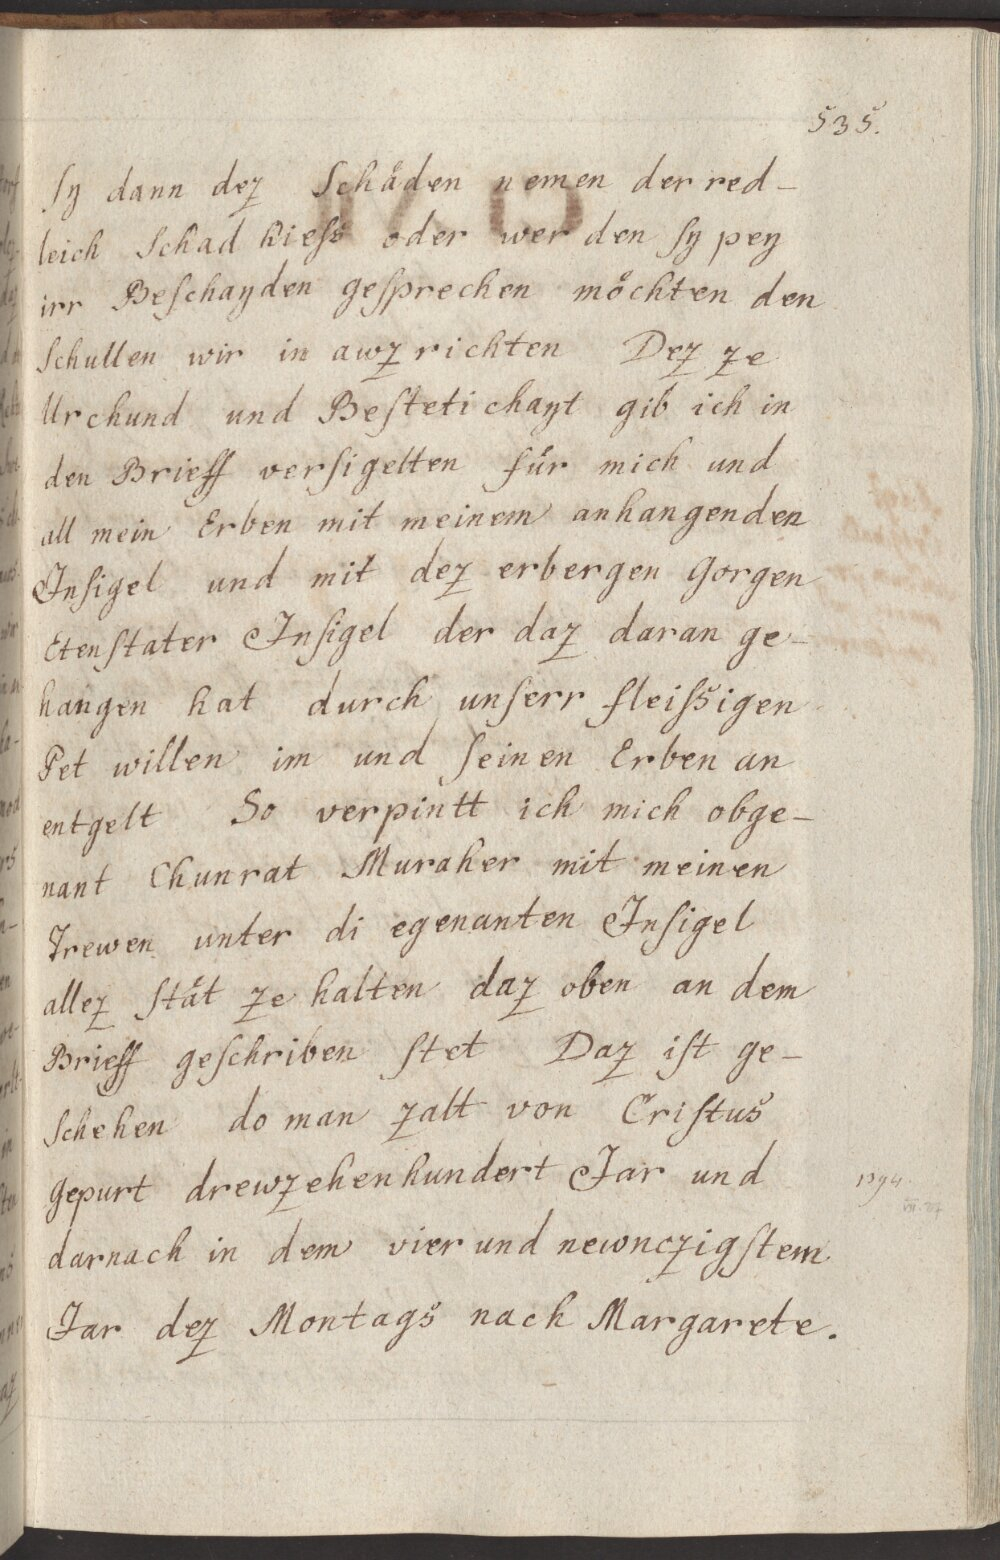 535.
Sy dann dez Schäden nemen der red-
leich Schad hiess oder wer den sy pey
irr Beschayden gesprechen möchten den
Schullen wir in awz richten Dez ze
Urchund und Bestetichayt gib ich in
den Brieff versigelten für mich und
all mein Erben mit meinem anhangenden
Insigel und mit dez erbergen Gorgen
Etenstater Insigel der daz daran ge-
hangen hat durch unserr fleissigen
Pet willen im und seinen Erben an
entgelt So verpintt ich mich obge-
nant Chunrat Muraher mit meinen
Trewen unter di egenanten Insigel
allez stät ze halten daz oben an dem
Brieff geschriben stet Daz ist ge-
schehen do man zalt von Cristus
gepurt drewzehenhundert Jar und
1394.
darnach in dem vier und newnczigstem
Jar dez Montags nach Margarete.